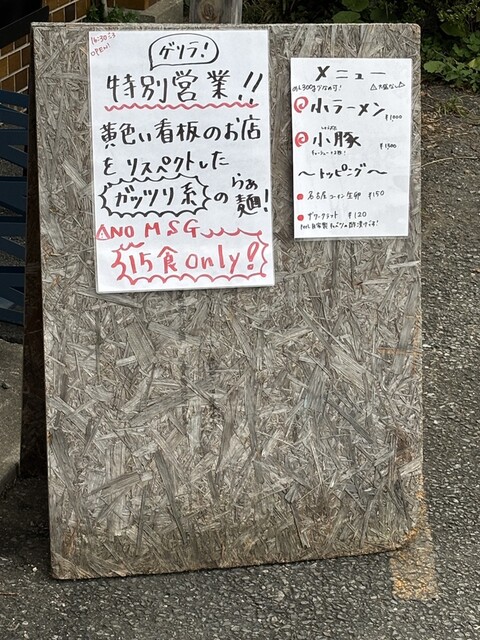 16:30〜
OPEN!
ゲリラ!
特別営業!!
黄色い看板のお店
をリスペクトした
ガッツリ系のらぁ麺!
⚠NO MSG
15食only!
メニュー
⚠大盛なし⚠
小ラーメン ¥1000
小豚 ¥1300
〜トッピング〜
名古屋コーチン生卵 ¥150
ザワークラウト ¥120